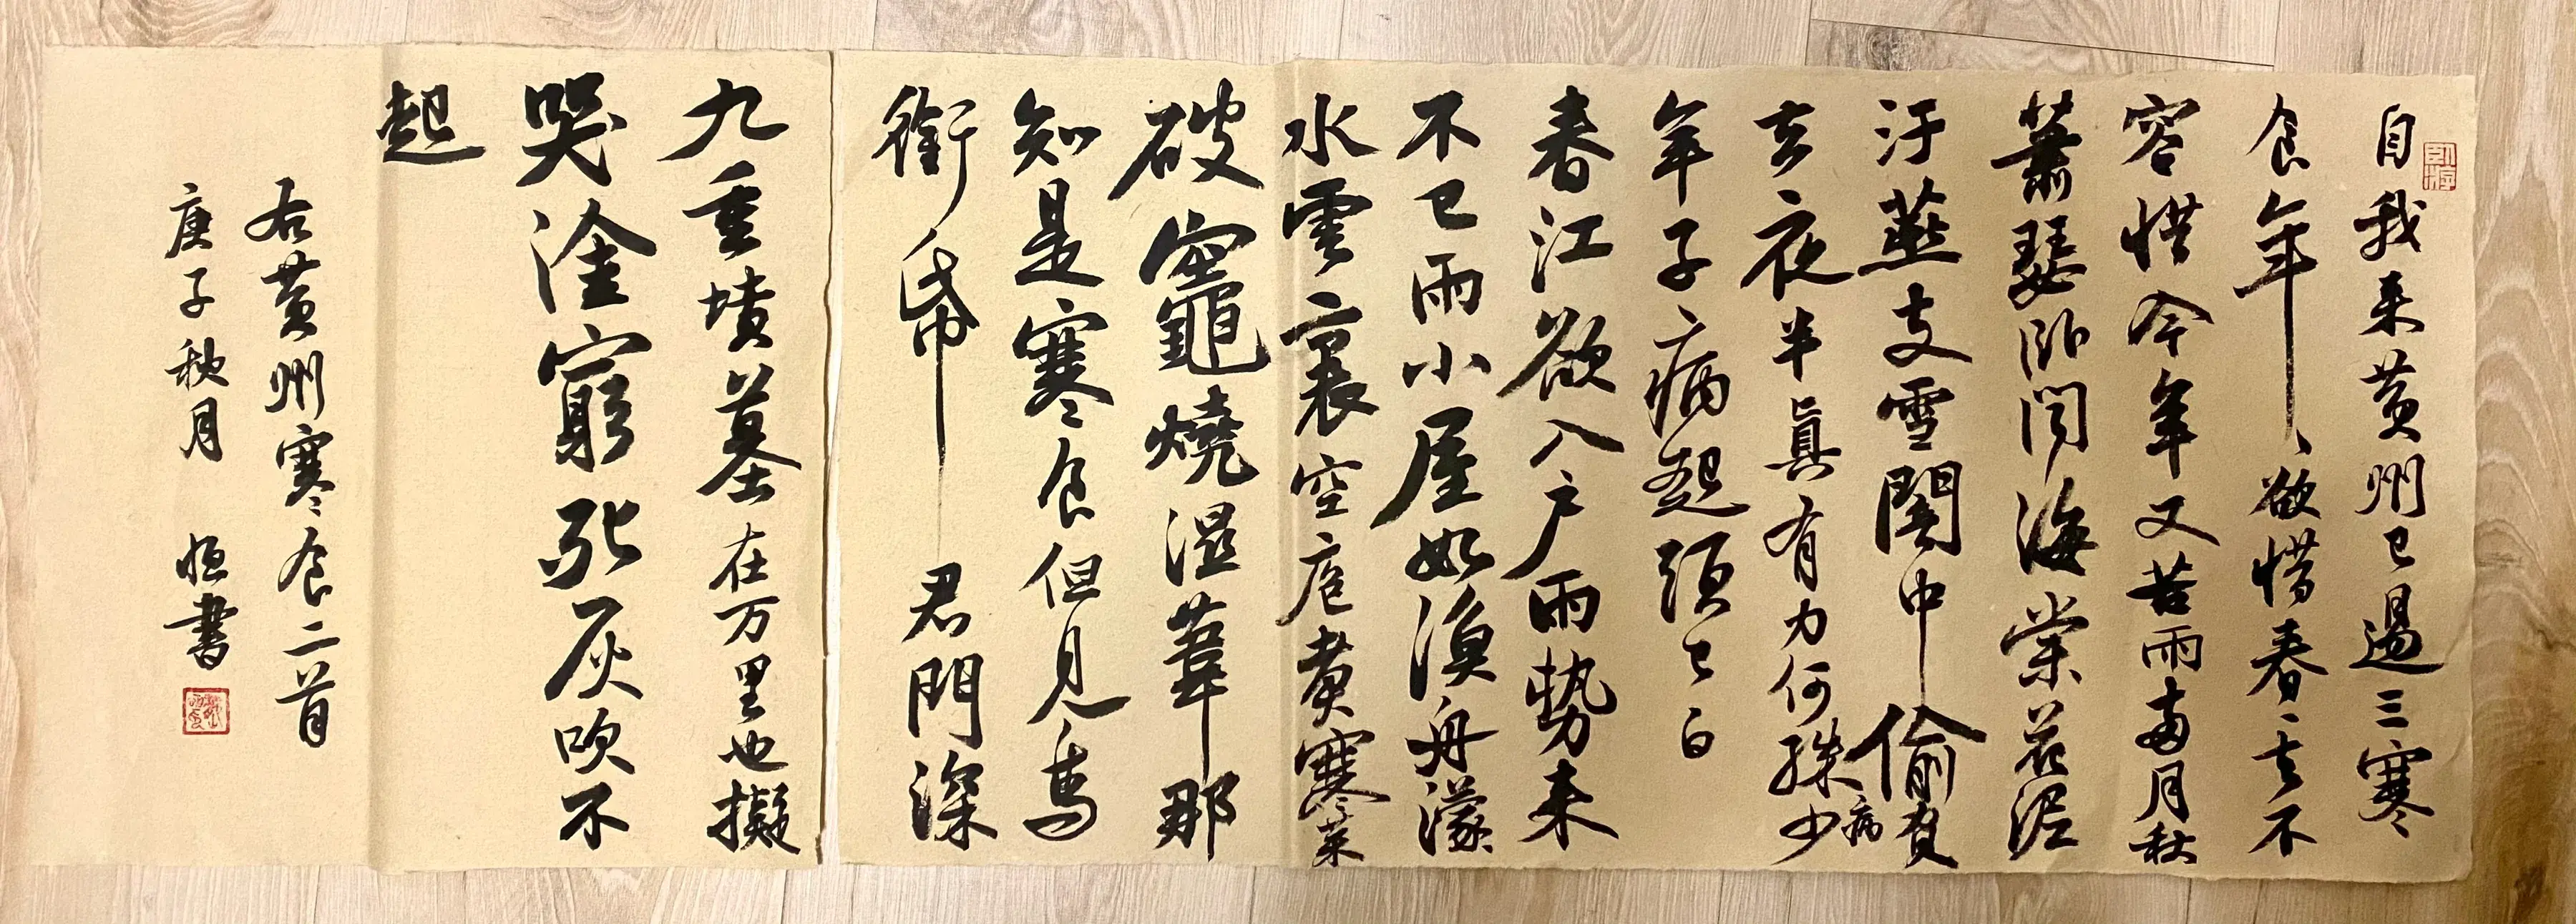 自我来黄州已過三寒
食年、欲惜春、去不
容惜今年又苦雨兩月秋
蕭瑟卧聞海棠花泥
汙燕支雪闇中偷負
去夜半真有力何殊病少
年子病起頭已白
春江欲入户雨勢来
不已雨小屋如漁舟濛
水雲裏空庖煮寒菜
破竈燒濕葦那
知是寒食但見烏
銜帋君門深
九重墳墓在万里也擬
哭塗窮死灰吹不
起
右黄州寒食二首
庚子秋月 恒書